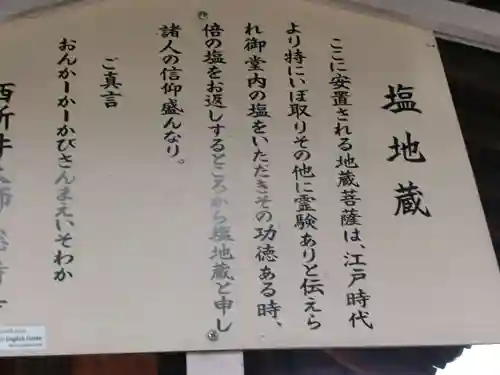 塩地蔵
ここに安置される地蔵菩薩は、江戸時代
より特にいぼ取りその他に霊験ありと伝えら
れ御堂内の塩をいただきその功徳ある時、
倍の塩をお返しするところから塩地蔵と申し
諸人の信仰盛んなり。
ご真言
おんかーかーかびさんまえいそわか
西新井大師
English Guide